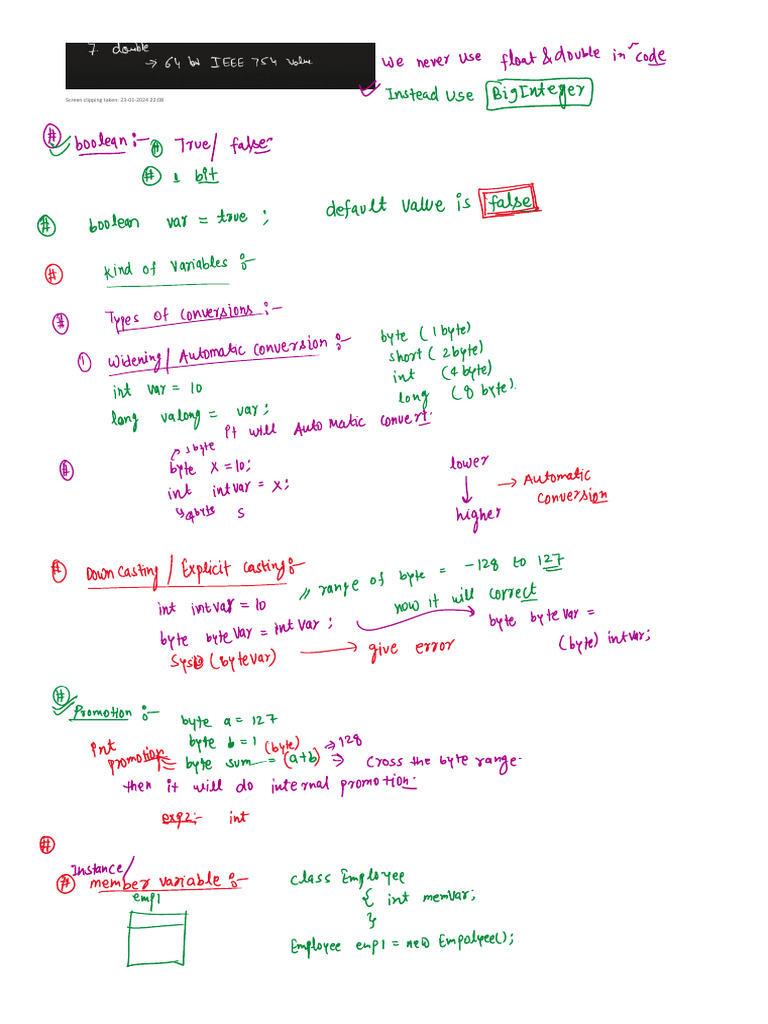 7. double
→ 64 bit IEEE 754 value
we never use float & double in code
Instead use BigInteger
Screen clipping taken: 23-01-2024 22:08
# boolean :- # True/ false
# 1 bit
# boolean var = true ; default value is false
# Kind of Variables :-
# Types of conversions :-
① Widening/ Automatic conversion :-
byte ( 1 byte)
short ( 2 byte)
int (4 byte)
long (8 byte).
int var = 10
long valong = var;
it will Automatic convert.
1 byte
# byte x = 10;
int intvar = x;
4 byte s
lower
↓
higher
→ Automatic
conversion
# Down Casting / Explicit casting :-
// range of byte = -128 to 127
int intvar = 10
now it will correct
byte byteVar = intVar ;
byte byteVar =
(byte) intVar;
(byteVar) → give error
# Promotion :-
byte a = 127
byte b = 1
int
promotion
byte sum = (byte) (a+b) → 128
→ Cross the byte range.
then it will do internal promotion.
exp2:- int
#
Instance/
# member variable :-
emp1
class Employee
{ int memVar;
}
Employee emp1 = new Empolyee();